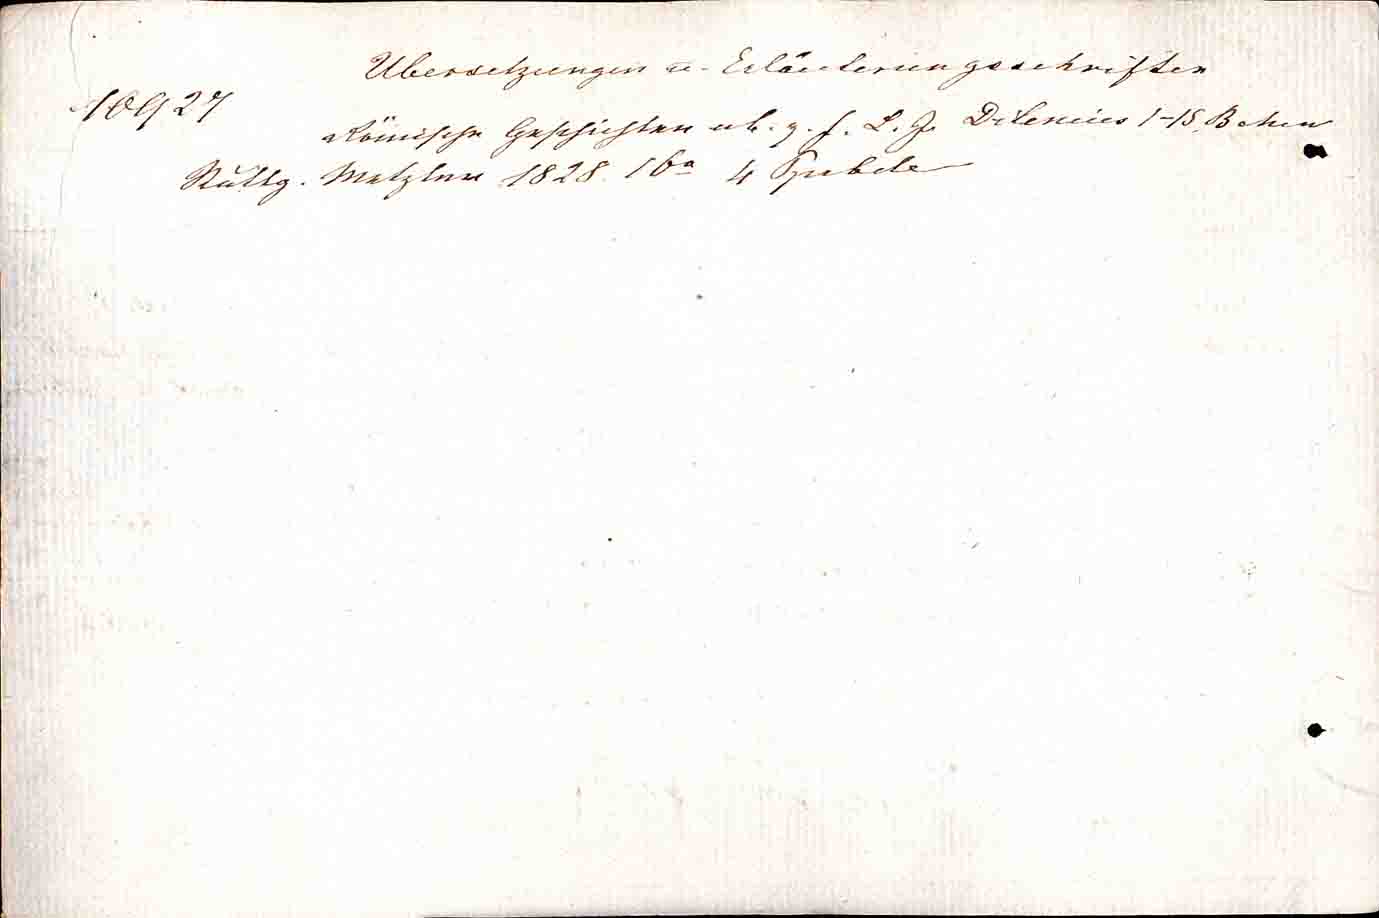 Übersetzungen u. Erläuterungsschriften
10927
Römische Geschichten üb. v. J. L. J. Dilenius 1-15 Bchen
Stuttg. Metzler 1828 16° 4 Ppbde